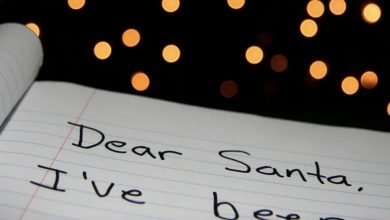 Dear Santa.
I've been